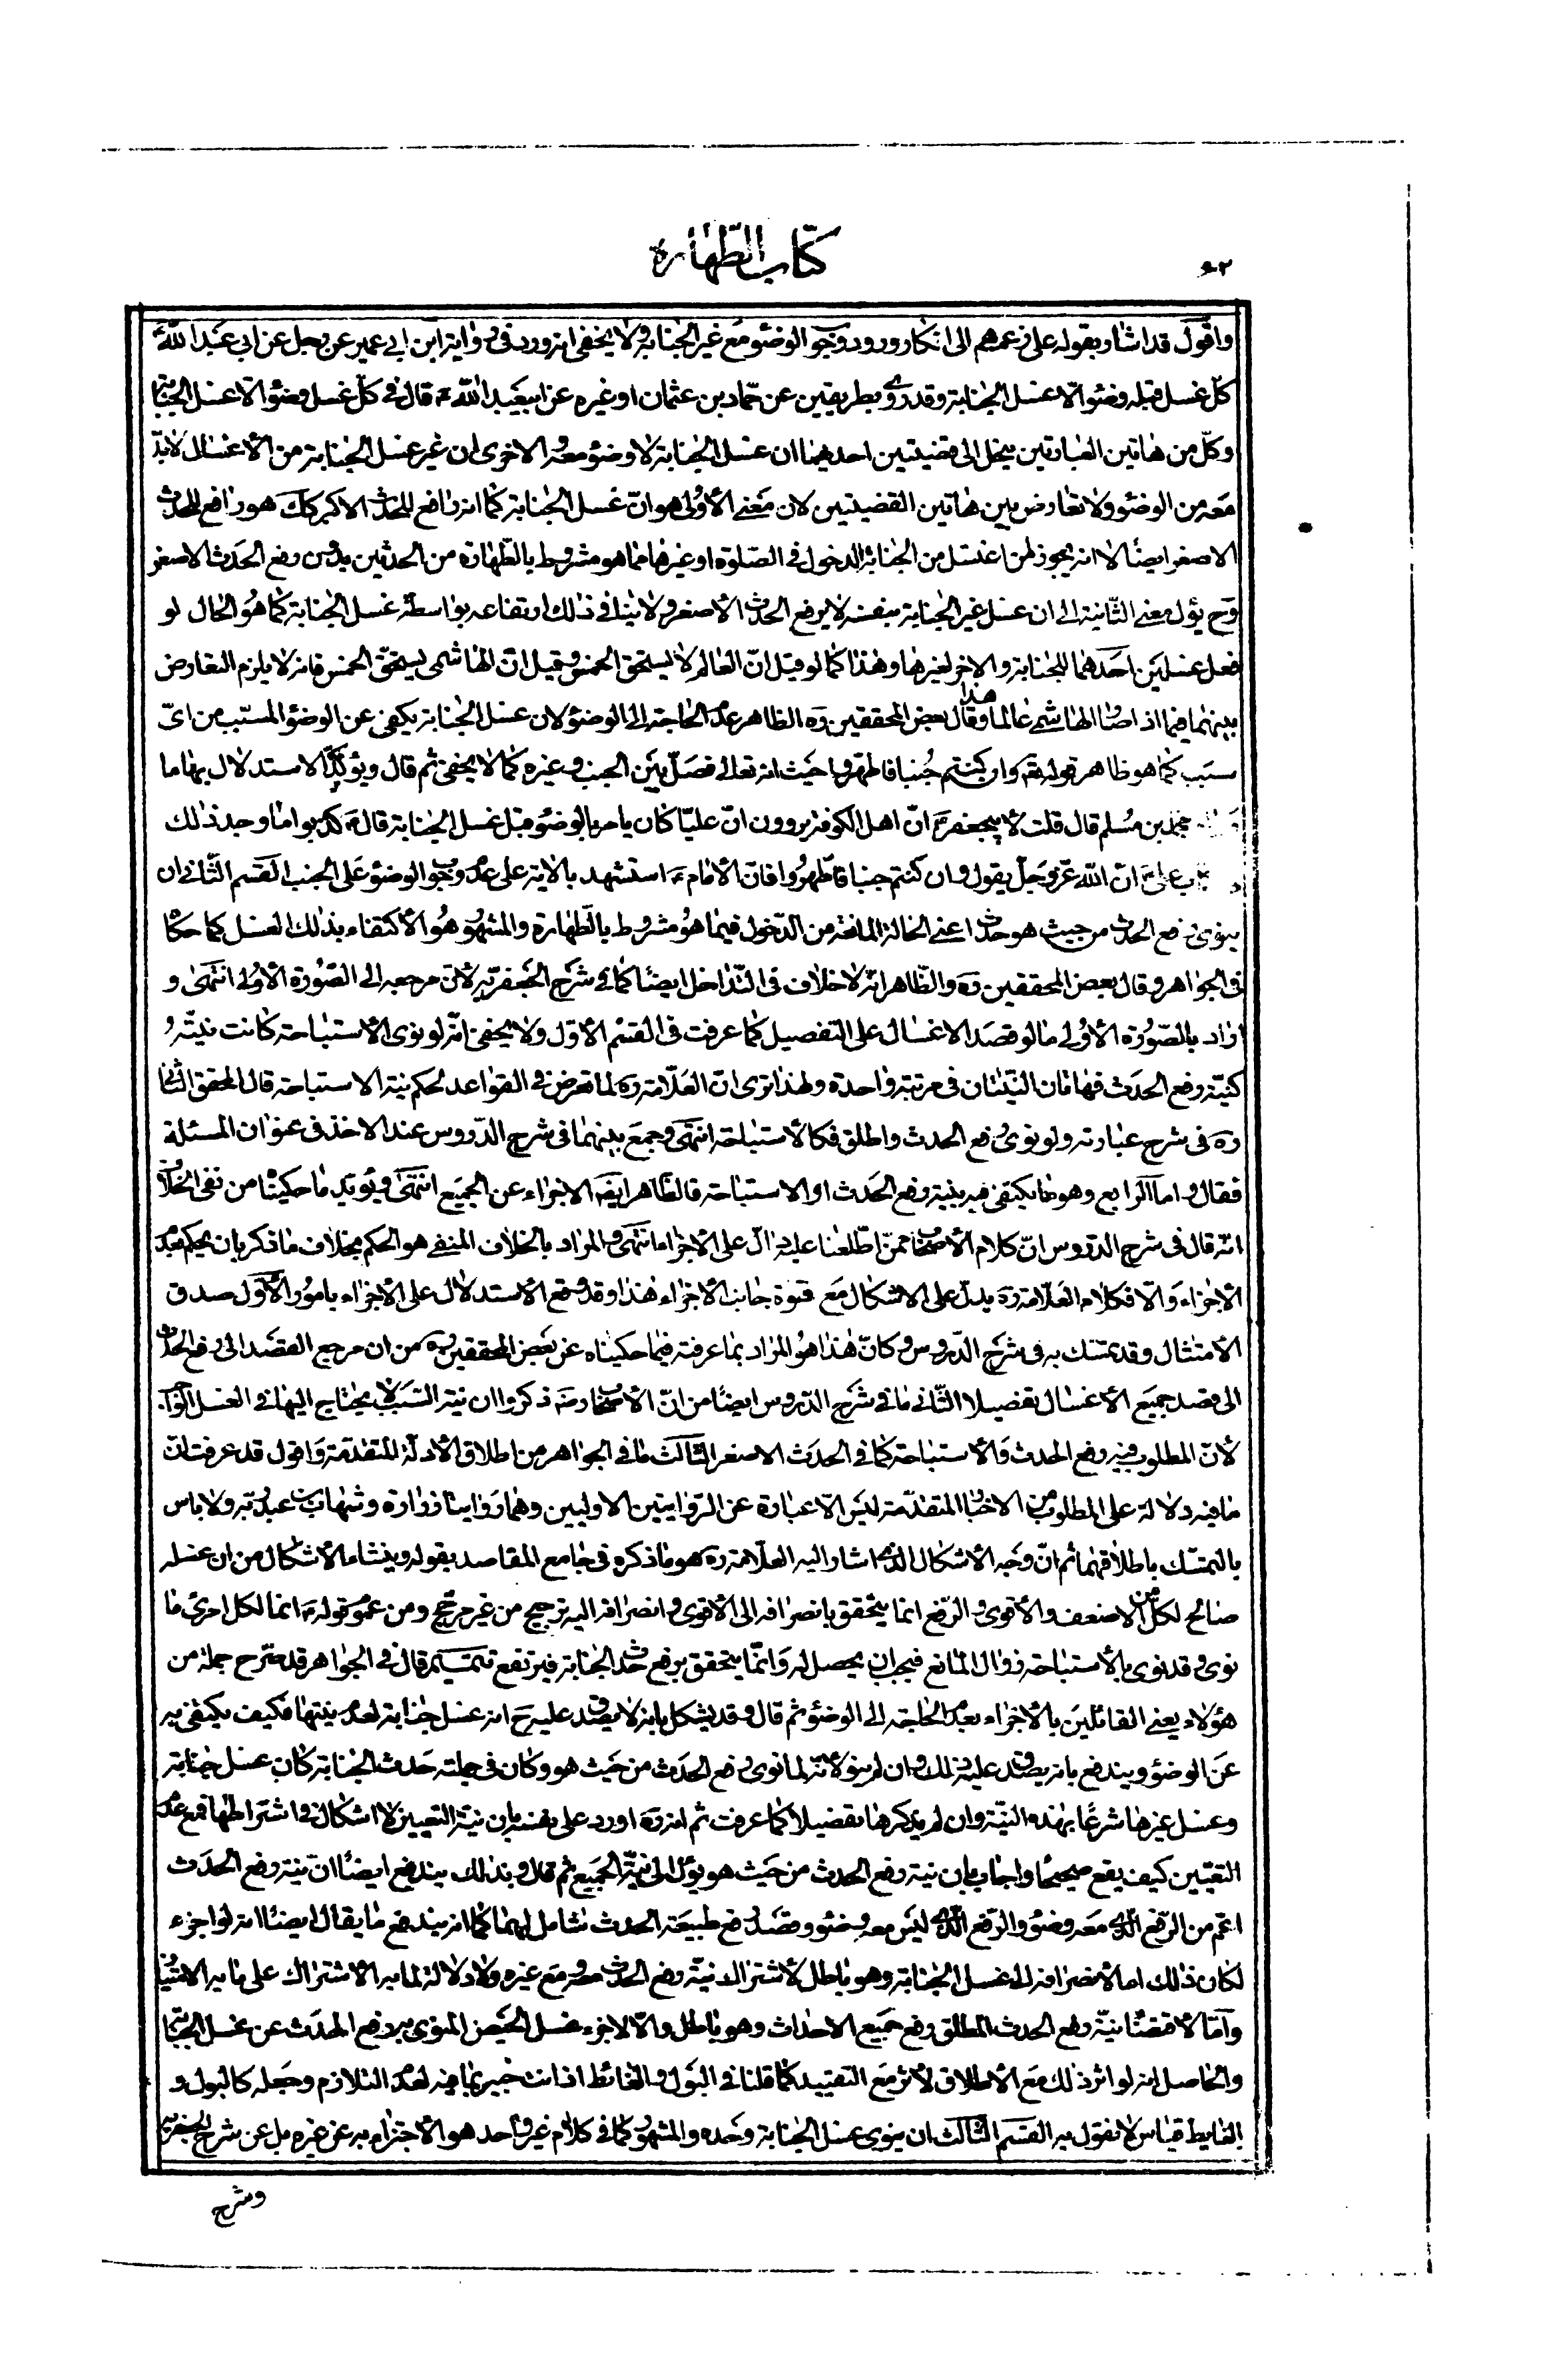 كتاب الطهارة
واقول قد اشار بقوله على زعمهم الى انكار ورود وجوب الوضوء مع غير الجنابة ولا يخفى انه ورد في رواية ابن ابي عمير عن رجل عن ابي عبد الله ع
كل غسل قبله وضوء الا غسل الجنابة وقد روى بطريقين عن حماد بن عثمان او غيره عن ابيعبد الله ع قال في كل غسل وضوء الا غسل الجنابة
وكل من هاتين العبارتين ينحل الى قضيتين احديهما ان غسل الجنابة لا وضوء معه والاخرى ان غير غسل الجنابة من الأغسال لا بد
معه من الوضوء ولا تعارض بين هاتين القضيتين لان معنى الأولى هو ان غسل الجنابة كما انه رافع للحدث الاكبر كك هو رافع للحدث
الاصغر ايضا لا انه يجوز لمن اغتسل من الجنابة الدخول في الصلوة او غيرها مما هو مشروط بالطهارة من الحدثين بدون رفع الحدث الاصغر
وح يؤل معنى الثانية الى ان غسل غير الجنابة بنفسه لا يرفع الحدث الأصغر ولا ينافى ذلك ارتفاعه بواسطة غسل الجنابة كما هو الحال لو
فعل غسلين احدهما للجنابة والاخر لغيرها وهذا كما لو قيل ان العالم لا يستحق الخمس وقيل ان الهاشمى يستحق الخمس فانه لا يلزم التعارض
بينهما فيما اذا صار الهاشمي عالما هذا وقال بعض المحققين ره الظاهر عدم الحاجة الى الوضوء لان غسل الجنابة يكفى عن الوضوء المسبب من اى
سبب كما هو ظاهر قوله تع وان كنتم جنبا فاطهروا حيث انه تعالى فصل بين الجنب وغيره كما لا يخفى ثم قال ويؤيد الاستدلال بها ما
محمد بن مسلم قال قلت لأبيجعفر ع ان اهل الكوفة يروون ان عليا كان يامر بالوضوء قبل غسل الجنابة قال ع كذبوا ما وجد ذلك
على ع ان الله عز وجل يقول وان كنتم جنبا فاطهروا فان الأمام ع استشهد بالاية على عدم وجوب الوضوء على الجنب القسم الثاني ان
ينوى رفع الحدث من حيث هو حدث اعنى الحالة المانعة من الدخول فيما هو مشروط بالطهارة والمشهور هو الأكتفاء بذلك الغسل كما حكاه
في الجواهر وقال بعض المحققين ره والظاهر انه لا خلاف في التداخل ايضا كما في شرح الجعفرية لأن مرجعه الى الصورة الأولى انتهى و
اراد بالصورة الأولى ما لو قصد الاغسال على التفصيل كما عرفت في القسم الأول ولا يخفى انه لو نوى الأستباحة كانت نيته
كنية رفع الحدث فهاتان النيتان في مرتبة واحدة ولهذا ترى ان العلامة ره لما تعرض في القواعد لحكم نية الاستباحة قال المحقق الثاني
ره في شرح عبارته ولو نوى رفع الحدث واطلق فكالأستباحة انتهى وجمع بينهما في شرح الدروس عند الاخذ في عنوان المسئلة
فقال واما الرابع وهو ما يكتفى فيه بنية رفع الحدث او الاستباحة فالظاهر ايضا الاجزاء عن الجميع انتهى ويؤيد ما حكيناه من نفى الخلاف
انه قال في شرح الدروس ان كلام الأصحاب ممن اطلعنا عليه دال على الأجزاء انتهى والمراد بالخلاف المنفى هو الحكم بخلاف ما ذكر بان يحكم بعدم
الأجزاء والا فكلام العلامة ره يدل على الاشكال مع قوة جانب الأجزاء هذا وقد وقع الأستدلال على الأجزاء بامور الأول صدق
الأمتثال وقد تمسك به في شرح الدروس وكان هذا هو المراد بما عرفته فيما حكيناه عن بعض المحققين ره من ان مرجع القصد الى رفع الحدث
الى قصد جميع الأغسال تفصيلا الثاني ما في شرح الدروس ايضا من ان الأصحاب رضه ذكروا ان نية السبب لا يحتاج اليها في الغسل الواجب
لأن المطلوب فيه رفع الحدث والأستباحة كما في الحدث الاصغر الثالث ما في الجواهر من اطلاق الأدلة المتقدمة واقول قد عرفت ان
ما فيه دلالة على المطلوب من الاخبار المتقدمة ليس الا عبارة عن الروايتين الاوليين وهما روايتا زرارة وشهاب بن عبد ربه ولا باس
بالتمسك باطلاقهما ثم ان وجه الأشكال الذى اشار اليه العلامة ره هو ما ذكره في جامع المقاصد بقوله وينشاء الأشكال من ان غسله
صالح لكل من الاضعف والأقوى والرفع انما يتحقق بانصرافه الى الأقوى وانصرافه اليه ترجيح من غير مرجح ومن عموم قوله ع انما لكل امرئ ما
نوى وقد نوى بالأستباحة زوال المانع فيجب ان يحصل له وانما يتحقق برفع حدث الجنابة فيرتفع تتمة قال في الجواهر قد صرح جملة من
هؤلاء يعنى القائلين بالأجزاء بعدم الحاجة الى الوضوء ثم قال وقد يشكل بانه لا يصدق عليه ح انه غسل جنابة لعدم نيتها فكيف يكتفى به
عن الوضوء ويندفع بانه يصدق عليه ذلك وان لم ينو لأنه لما نوى رفع الحدث من حيث هو وكان في جملته حدث الجنابة كان غسل جنابة
وغسل غيرها شرعا بهذه النية وان لم يذكرها تفصيلا كما عرفت ثم انه ره اورد على نفسه بان نية التعيين لا اشكال في اشتراطها فمع عدم
التعيين كيف يقع صحيحا واجاب بان نية رفع الحدث من حيث هو يؤل الى نية الجميع ثم قال وبذلك يندفع ايضا ان نية رفع الحدث
اعم من الرفع الذى معه وضوء والرفع الذى ليس معه وضوء وقصد رفع طبيعة الحدث شامل لهما كما انه يندفع ما يقال ايضا انه لو اجزء
لكان ذلك اما لأنصرافه الى غسل الجنابة وهو باطل لأشتراك نية رفع الحدث معه ومع غيره ولا دلالة لما به الأشتراك على ما به الامتياز
واما لأقتضاء نية رفع الحدث المطلق رفع جميع الاحداث وهو باطل والا لاجزء غسل الحيض المنوى به رفع الحدث عن غسل الجنابة
والحاصل انه لو اثر ذلك مع الأطلاق لأثر مع التقييد كما قلنا في البول والغائط اذ انت خبير بما فيه لعدم التلازم وجعله كالبول و
الغايط قياس لا نقول به القسم الثالث ان ينوى غسل الجنابة وحده والمشهور كما في كلام غير واحد هو الأجتزاء به عن غيره بل عن شرح الجعفرية
وشرح